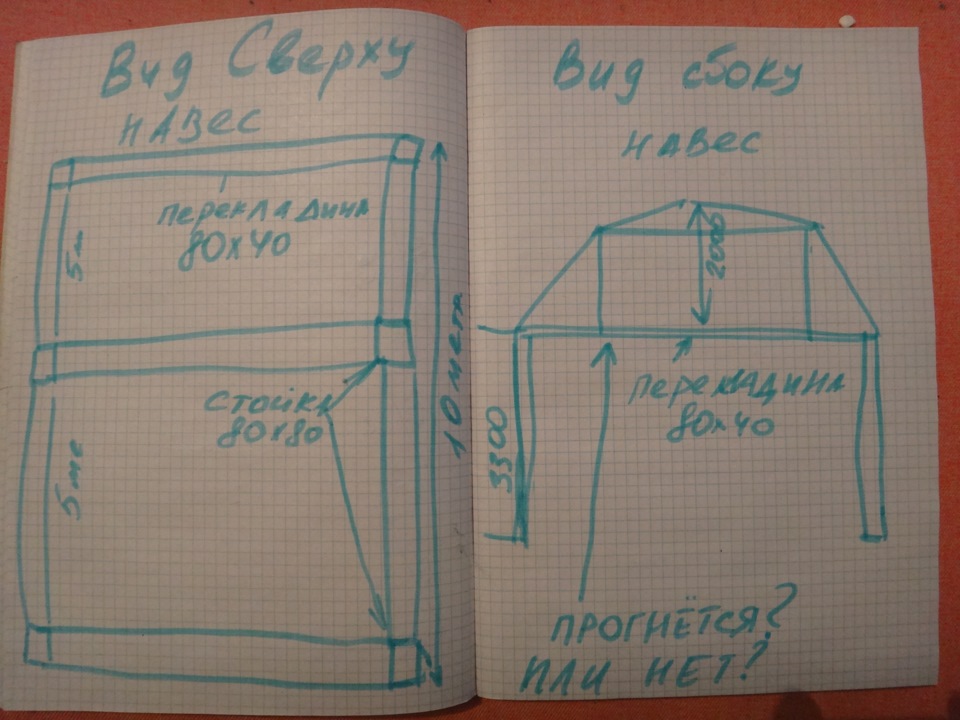 Вид Сверху
НАВЕС
перекладина
80х40
5м
стойка
80х80
5ме
10 метр
Вид сбоку
НАВЕС
2000
перекладина
80х40
3300
ПРОГНЁТСЯ?
ИЛИ НЕТ?